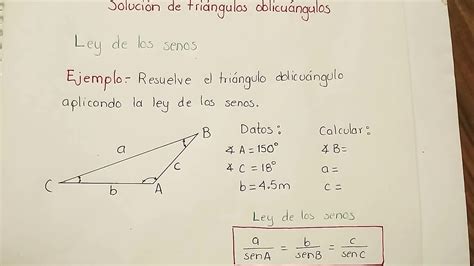 Solución de triángulos oblicuángulos
Ley de los senos
Ejemplo:- Resuelve el triángulo oblicuángulo
aplicando la ley de los senos.
B
a
c
C
b
A
Datos:
∡ A = 150°
∡ C = 18°
b = 4.5m
Calcular:
∡ B=
a=
c=
Ley de los senos
a/senA = b/senB = c/senC